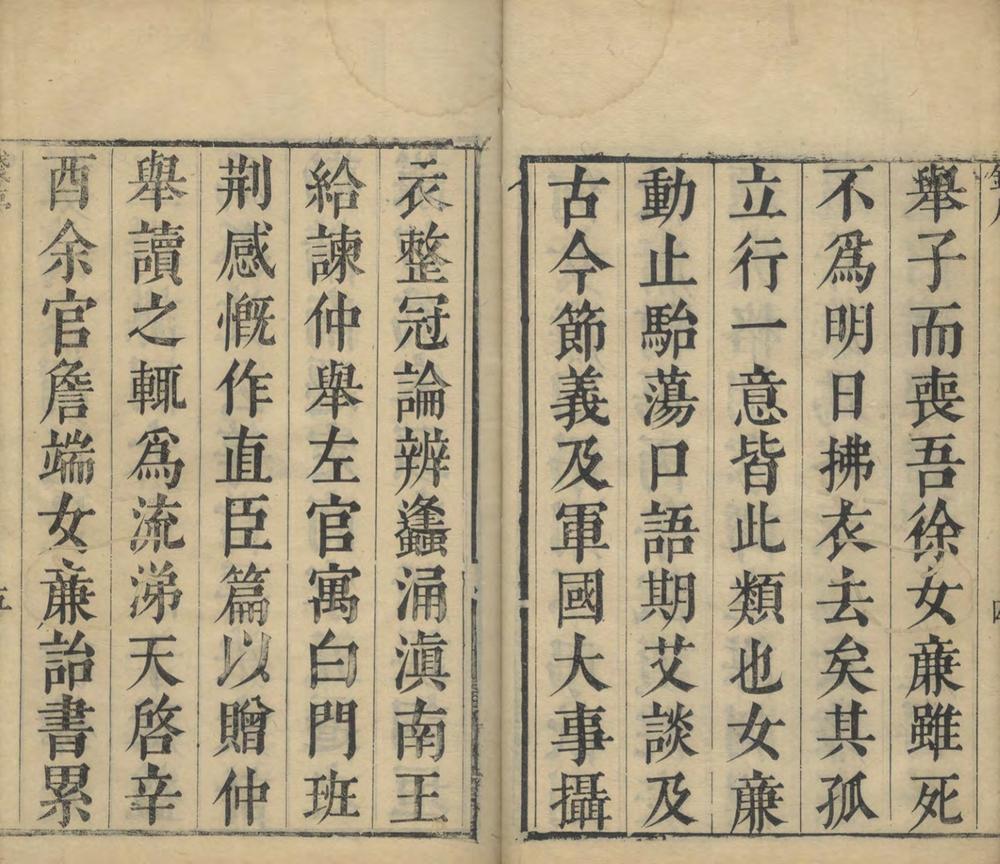 舉子而喪吾徐女廉雖死
不爲明日拂衣去矣其孤
立行一意皆此類也女廉
動止駘蕩口語期艾談及
古今節義及軍國大事攝
衣整冠論辨蠭涌滇南王
給諫仲舉左官寓白門班
荆感慨作直臣篇以贈仲
舉讀之輒爲流涕天啓辛
酉余官詹端女廉詒書累